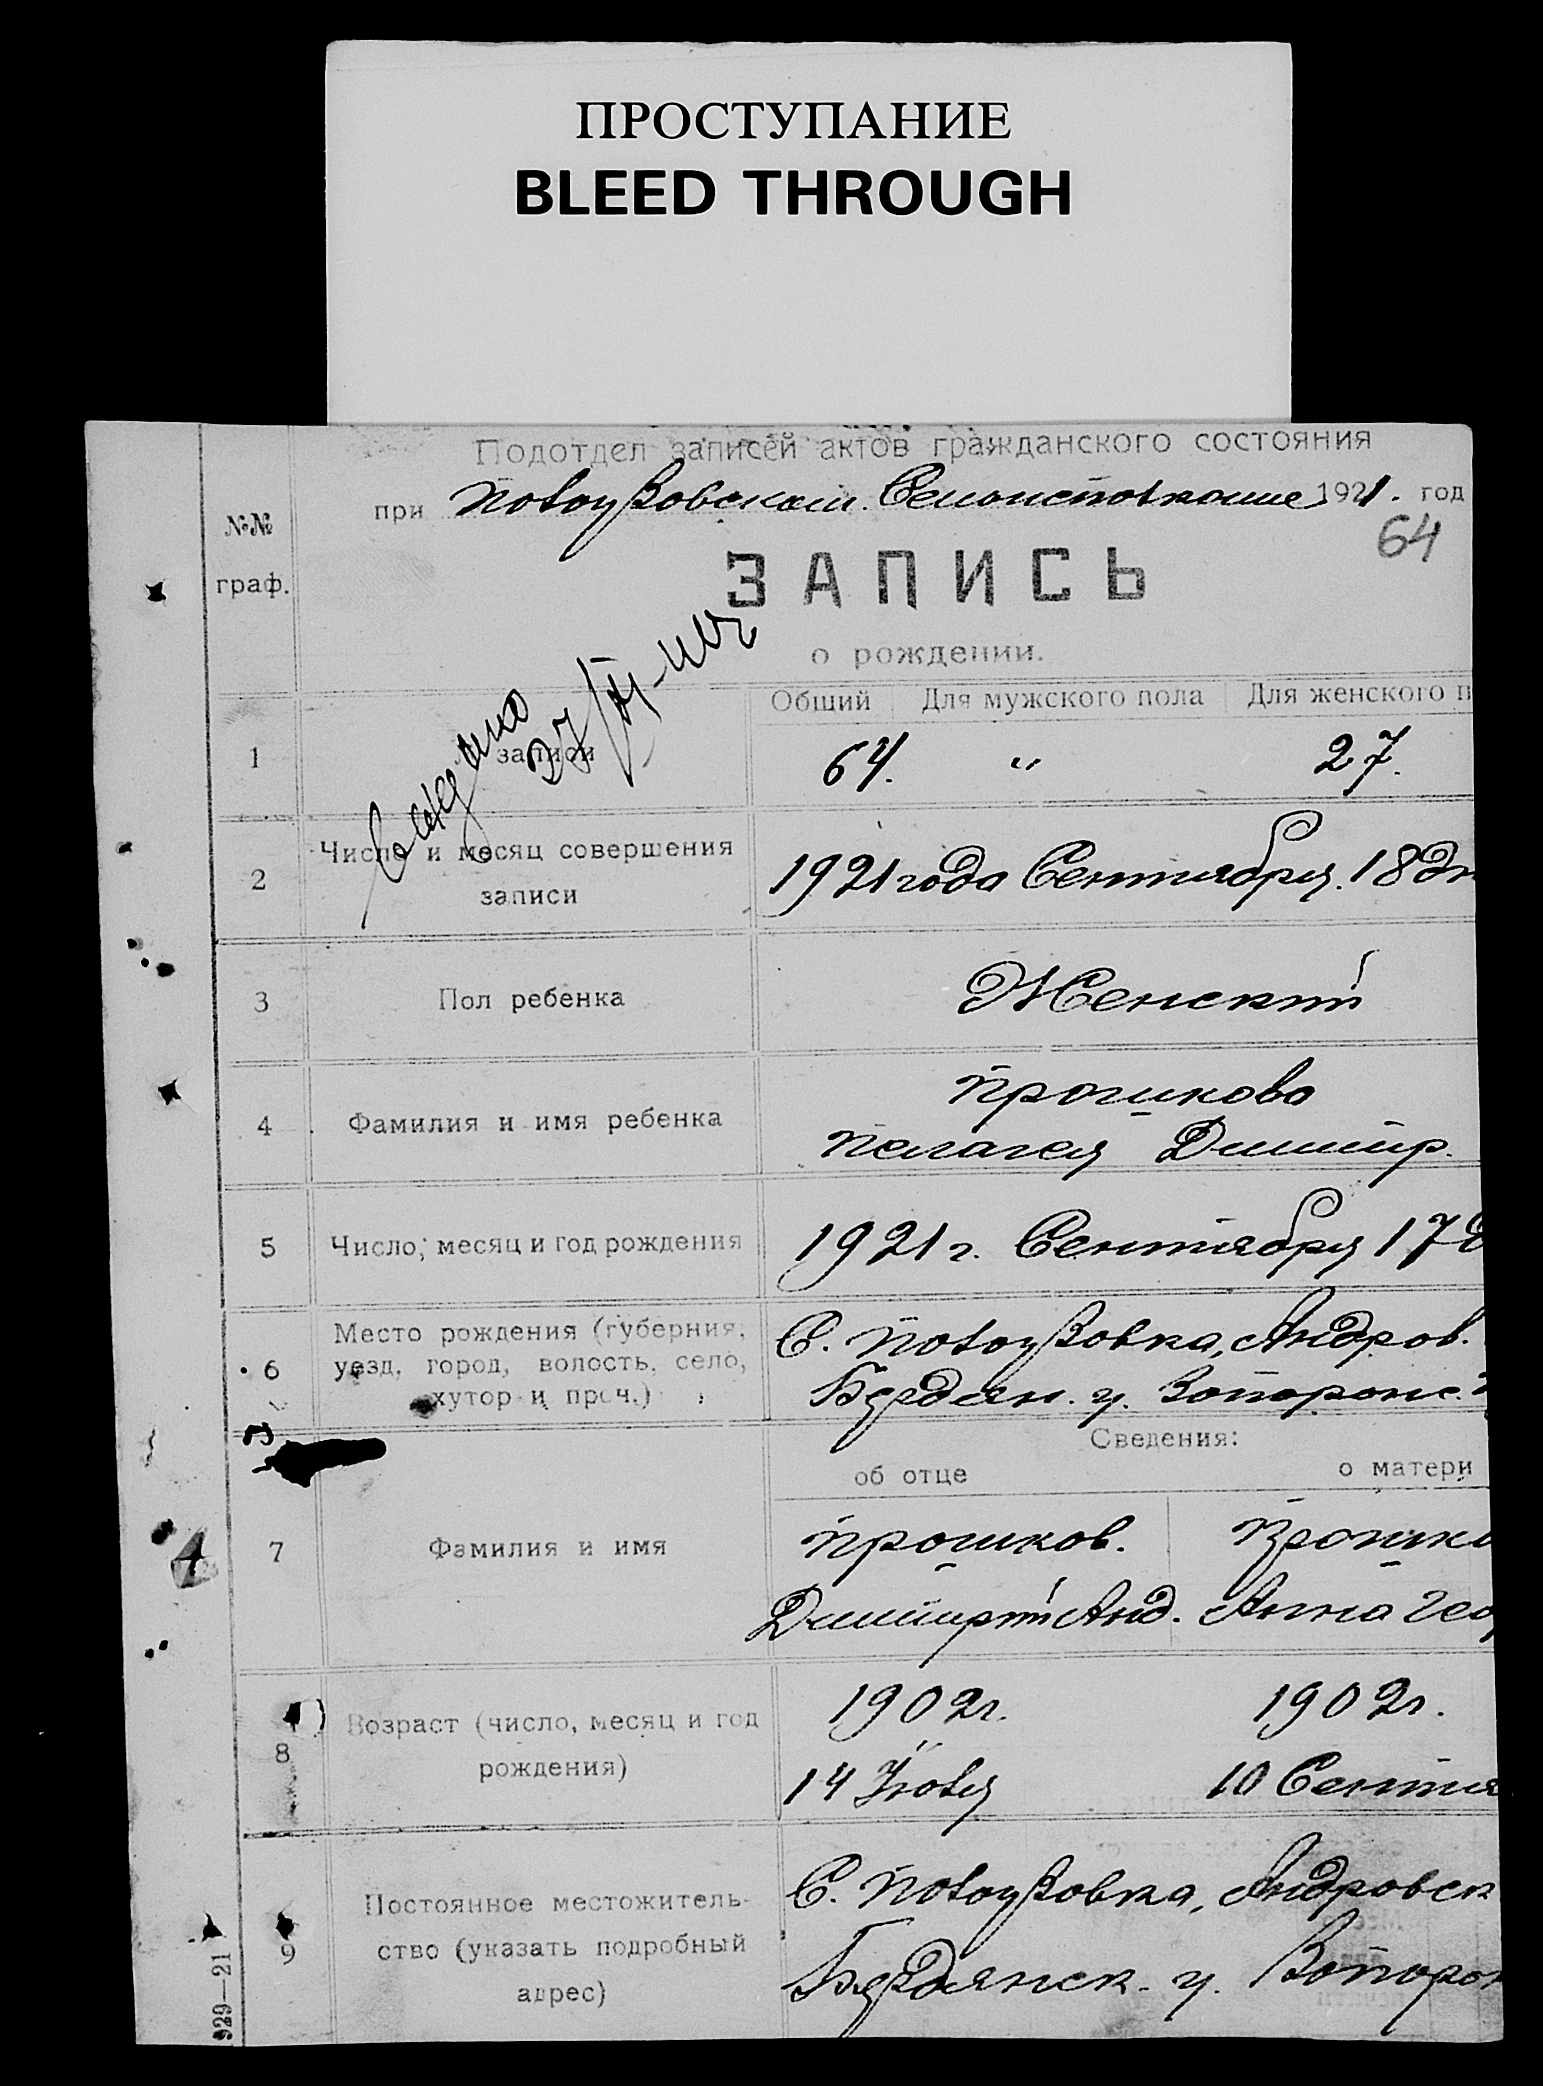 ПРОСТУПАНИЕ
BLEED THROUGH
Подотдел записей актов гражданского состояния
при 1921. год
64
№№
граф.
ЗАПИСЬ
о рождении.
Общий Для мужского пола Для женского п
1 записи 64. " 27.
2 Число и месяц совершения
записи
1921 года Сентября. 18 дн
3 Пол ребенка Женскій
4 Фамилия и имя ребенка
Прошкова
Пелагея Димитр.
5 Число, месяц и год рождения 1921 г. Сентября 17
6 Место рождения (губерния,
уезд, город, волость, село,
хутор и проч.)
С. Андров.
Бердян. у. Запорожс.
Сведения:
об отце о матери
7 Фамилия и имя
Прошков. Прошко
Димитрій Анд. Анна Геор
8 Возраст (число, месяц и год
рождения)
1902 г. 1902 г.
14 10 Сентя
9 Постоянное местожитель-
ство (указать подробный
адрес)
С. Андровск
Бердянск. у. Запорож
929—21